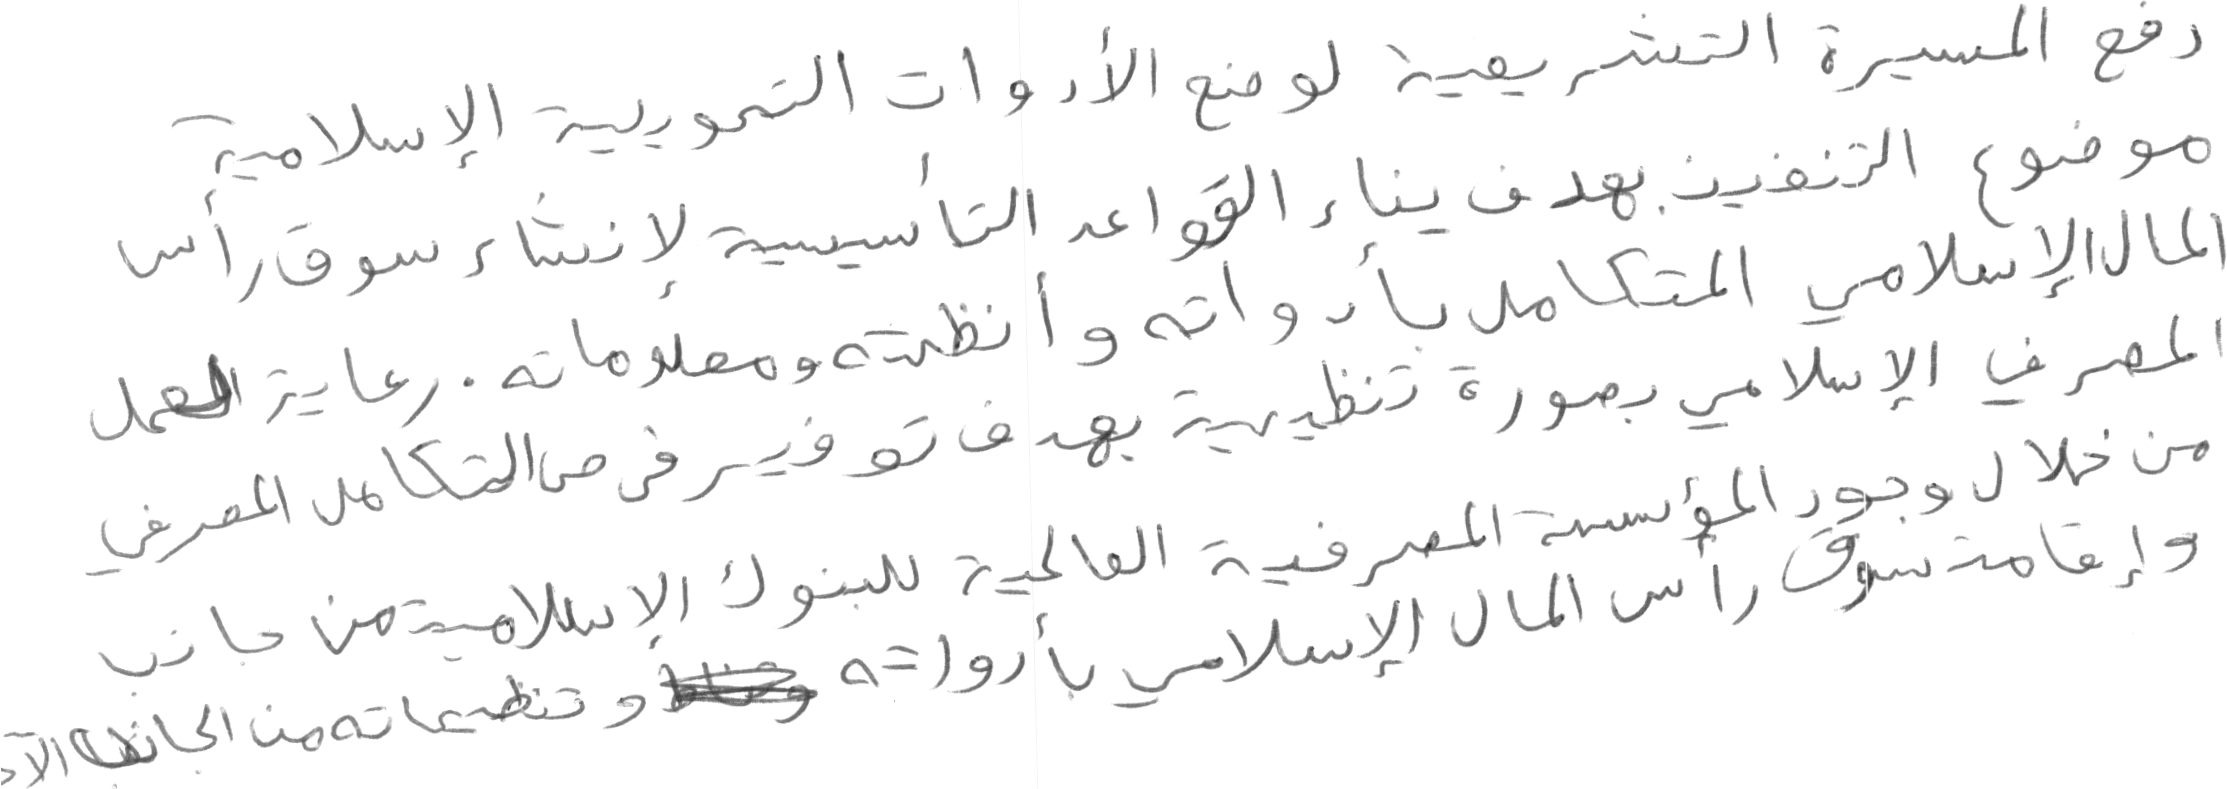 دفع المسيرة التشريعية لوضع الأدوات التمويلية الإسلامية
موضوع التنفيذ بهدف بناء القواعد التأسيسية لإنشاء سوق رأس
المال الإسلامي المتكامل بأدواته وأنظمته ومعلوماته. رعاية العمل
المصرفي الإسلامي بصورة تنظيمية بهدف توفير فرص التكامل المصرفي
من خلال وجود المؤسسة المصرفية العالمية للبنوك الإسلامية من جانب
وإقامة سوق رأس المال الإسلامي بأدواته وتنظيماته من الجانب